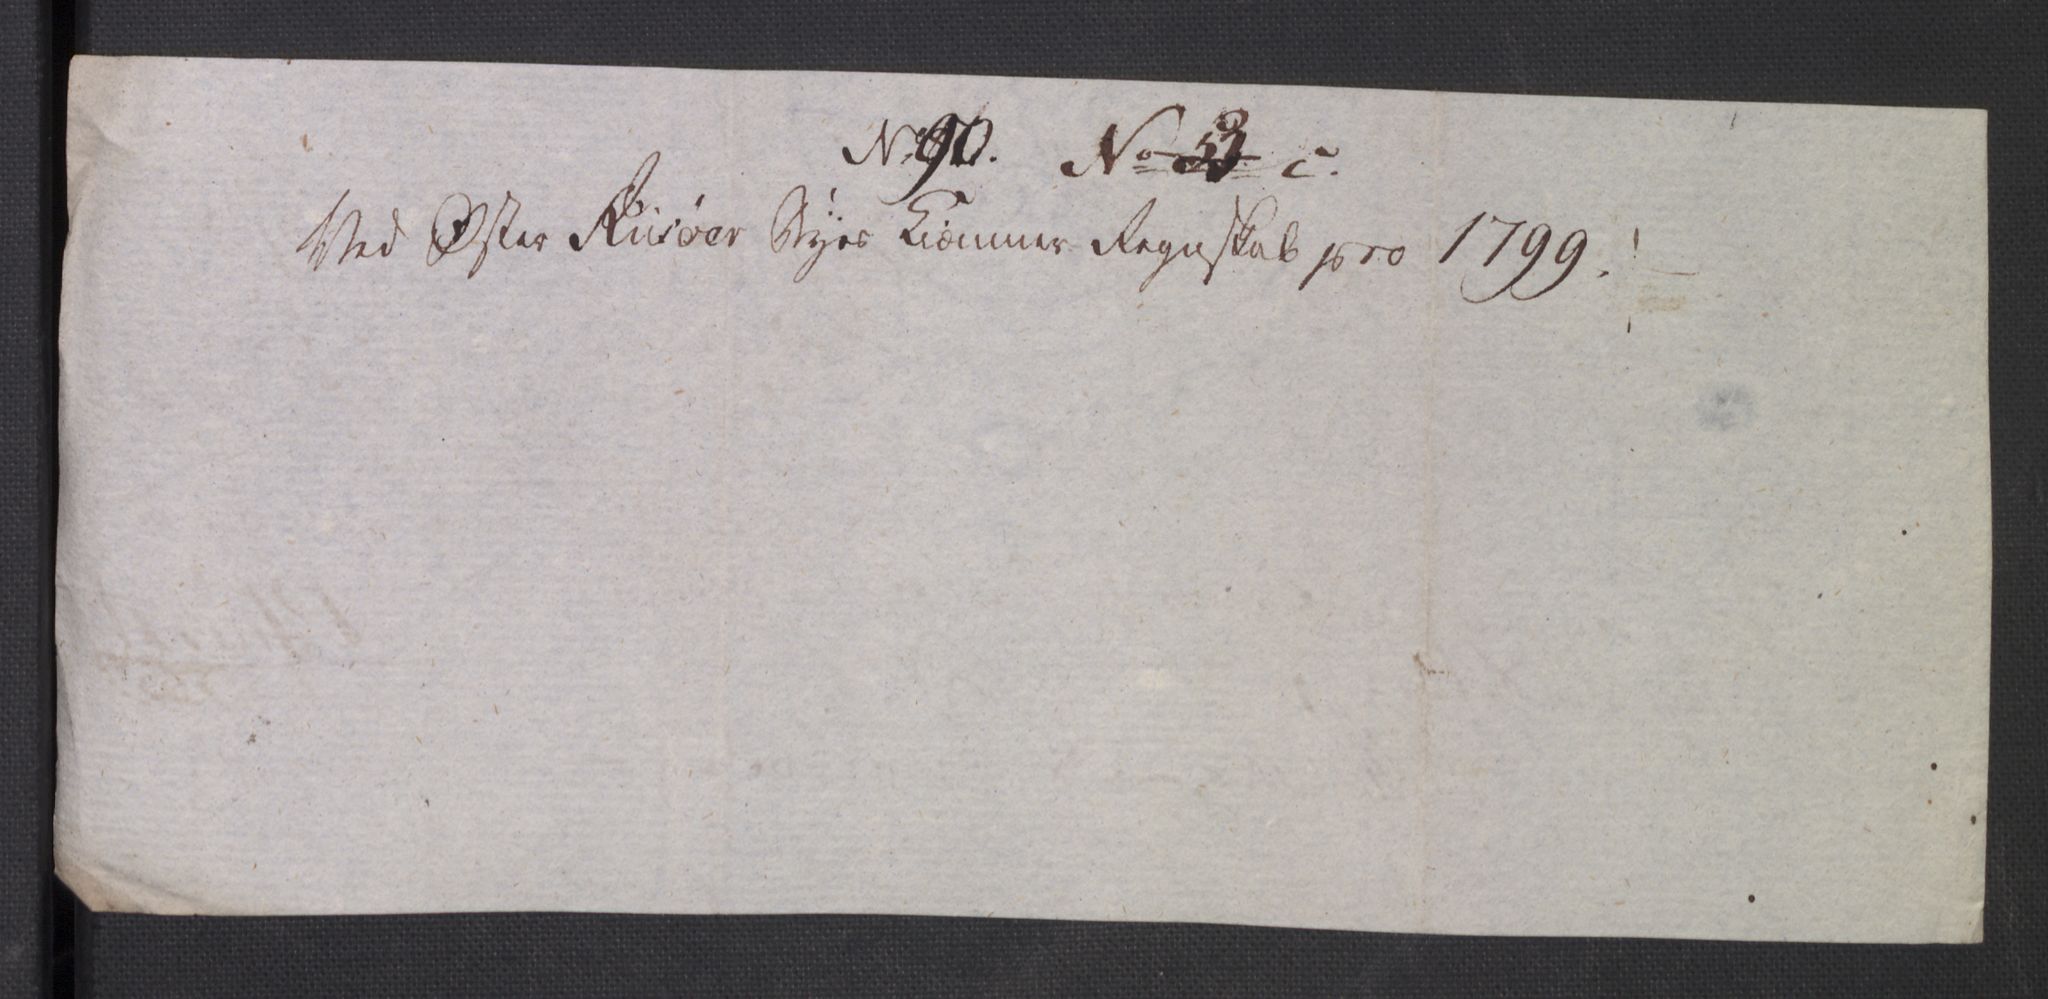 No 90. No 3 c.
Ved Øster Riisøer Byes Kiæmner Regnskab pro 1799.